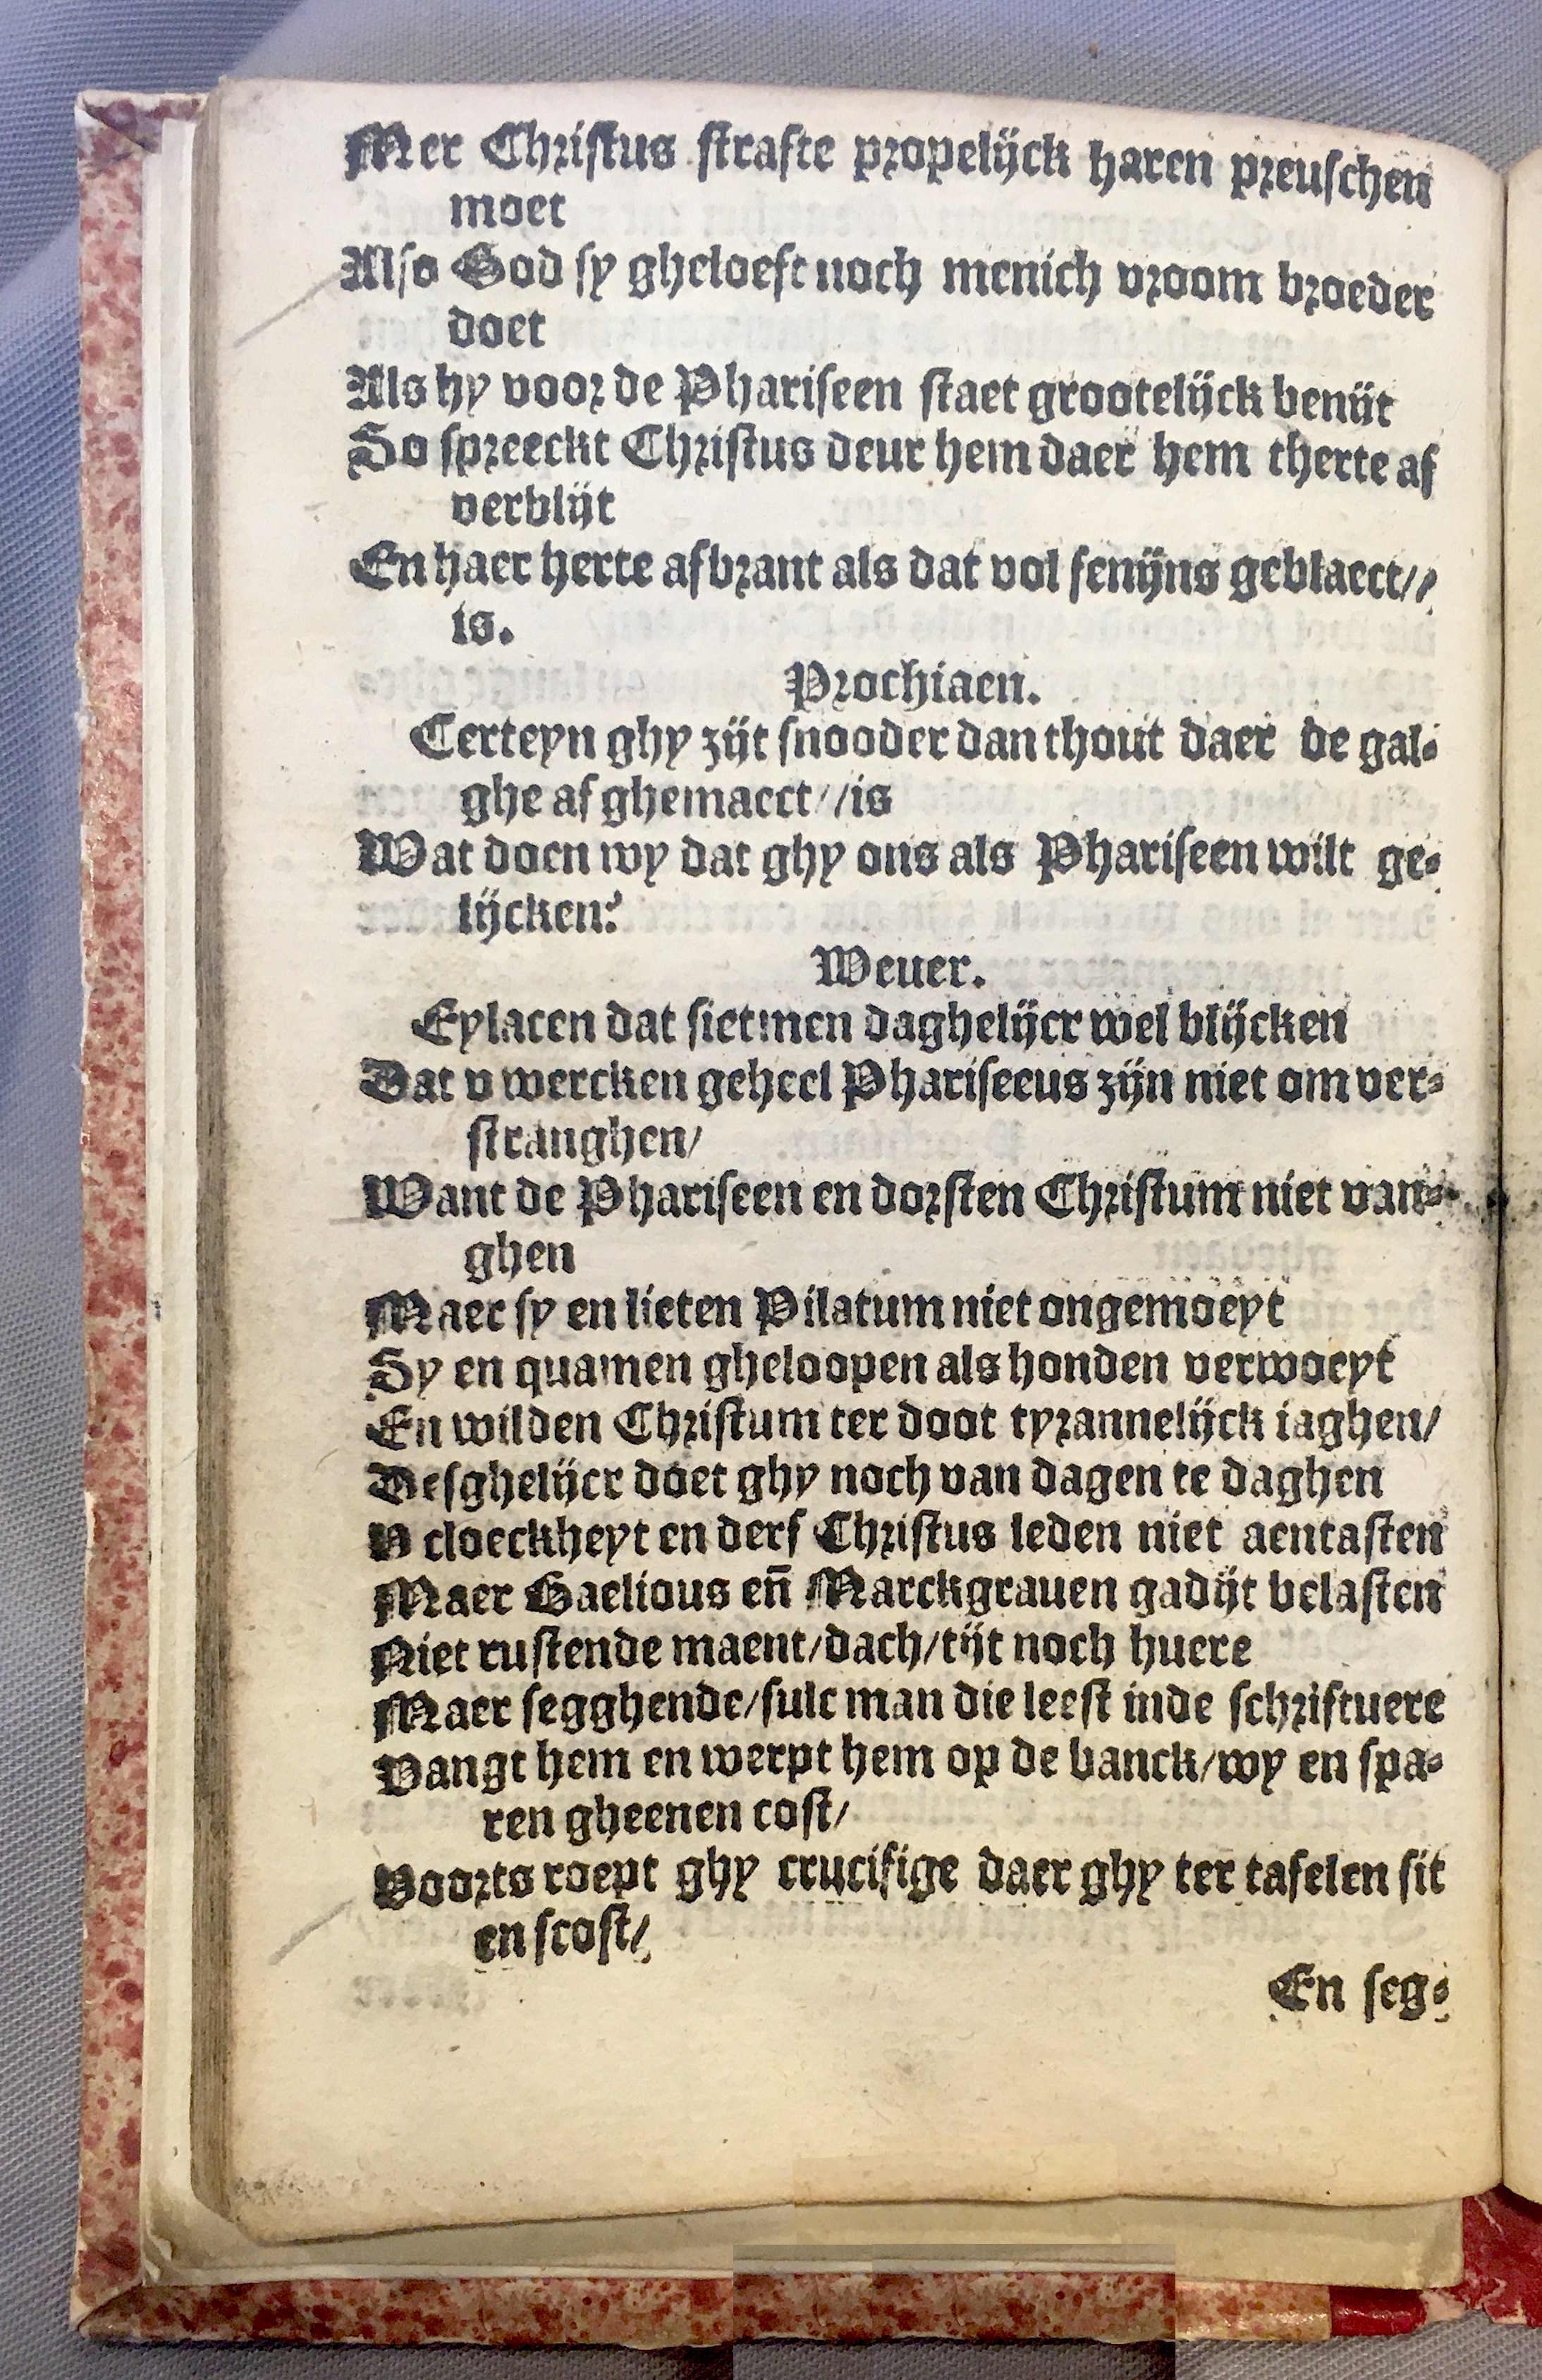 Mer Christus strafte propelijck haren preuschen
moet
Also God sy gheloeft noch menich vroom broeder
doet
Als hy voor de Phariseen staet grootelijck benijt
So spreeckt Christus deur hem daer hem therte af
verblijt
En haer herte afbrant als dat vol fenijns geblaect//
is.
Prochiaen.
Certeyn ghy zijt snooder dan thout daer de gal-
ghe af ghemaect//is
Wat doen wy dat ghy ons als Phariseen wilt ge-
lijcken?
Weuer.
Eylacen dat sietmen daghelijcx wel blijcken
Dat v wercken geheel Phariseeus zijn niet om ver-
stranghen/
Want de Phariseen en dorsten Christum niet van-
ghen
Maer sy en lieten Pilatum niet ongemoeyt
Sy en quamen gheloopen als honden verwoeyt
En wilden Christum ter doot tyrannelijck iaghen/
Desghelijcx doet ghy noch van dagen te daghen
V cloeckheyt en derf Christus leden niet aentasten
Maer Baelious en̄ Marckgrauen gadijt belasten
Niet rustende maent/dach/tijt noch huere
Maer segghende/sulc man die leest inde schriftuere
Vangt hem en werpt hem op de banck/wy en spa-
ren gheenen cost/
Voorts roept ghy crucifige daer ghy ter tafelen sit
en scost/
En seg-